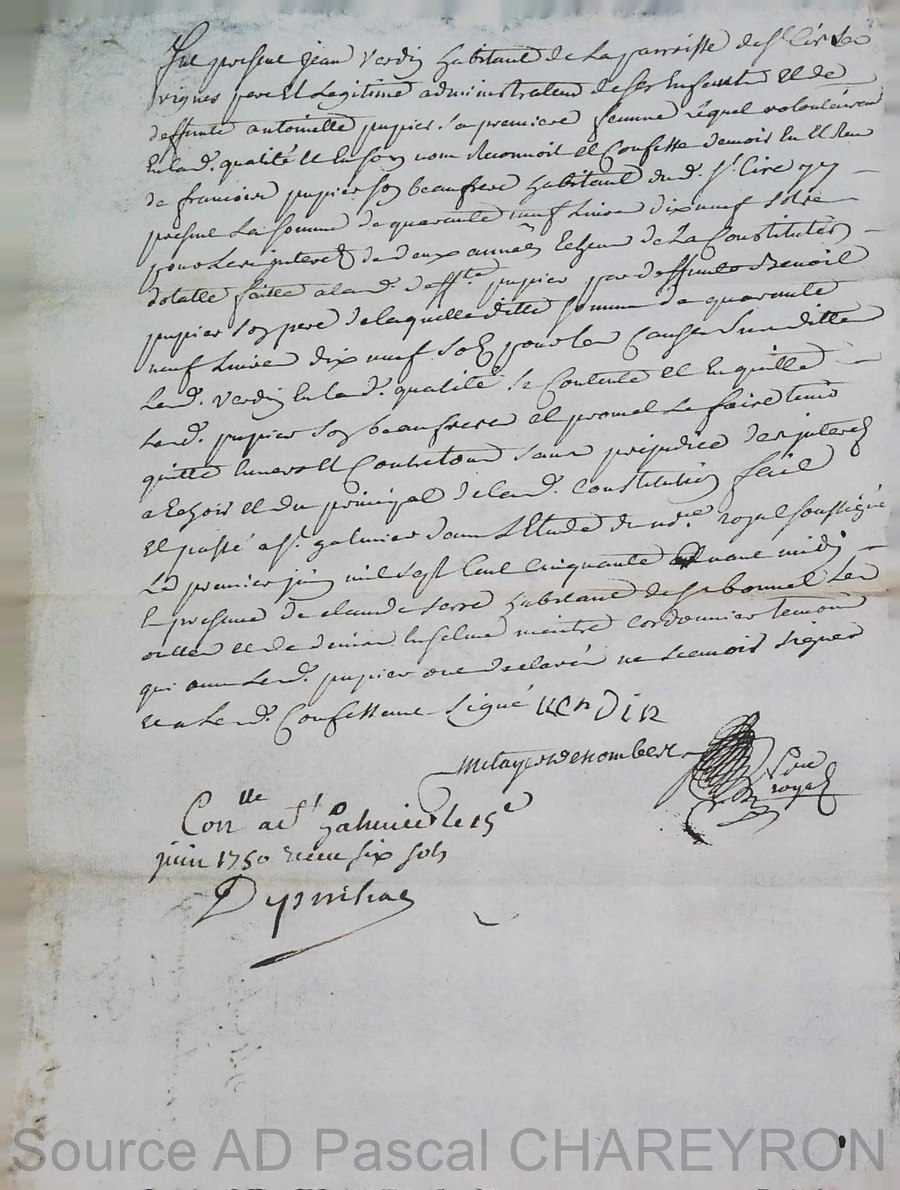 Fut présent jean Verdin habitant de La parroisse de St Cir les
vignes pere Et Legitime administrateur de ses Enfants Et de
deffunte antoinette pupier sa premiere femme Lequel volontairem
En lad. qualité Et En son nom Reconnoit et Confesse avoir Eu Et Reçu
de francois pupier son beaufrere habitant dud. St Cire
present La somme de quarante neuf Livre dix neuf sols
pour les interets de deux années Echeue de La Constitution
dotalle faitte a lad. deffte pupier par deffunt Benoit
pupier son pere de laquelle ditte somme de quarante
neuf Livre dix neuf sols pour les Causes susditte
Led. Verdin En lad. qualité se Contente Et En quitte
Led. pupier son beaufrere et promet Le faire tenir
quitte Envers Et Contre tous sans prejudice des interets
a Echoir Et du principal de lad. constitution fait
Et passé a St galmier dans L'Etude du no.re royal soussigné
Le premier juin mil sept Cent Cinquante avant midi
En presence de claude habitant de St bonnet Les
oulles Et de Enselme maitre cordonnier temoins
qui avec Led. pupier ont declarés ne scavoir signer
Et a Led. Confessant signé Uerdin
metayer
no.re
royal
Con.lle a St Galmier le 15e
juin 1750 receu six sols
Source AD Pascal CHAREYRON